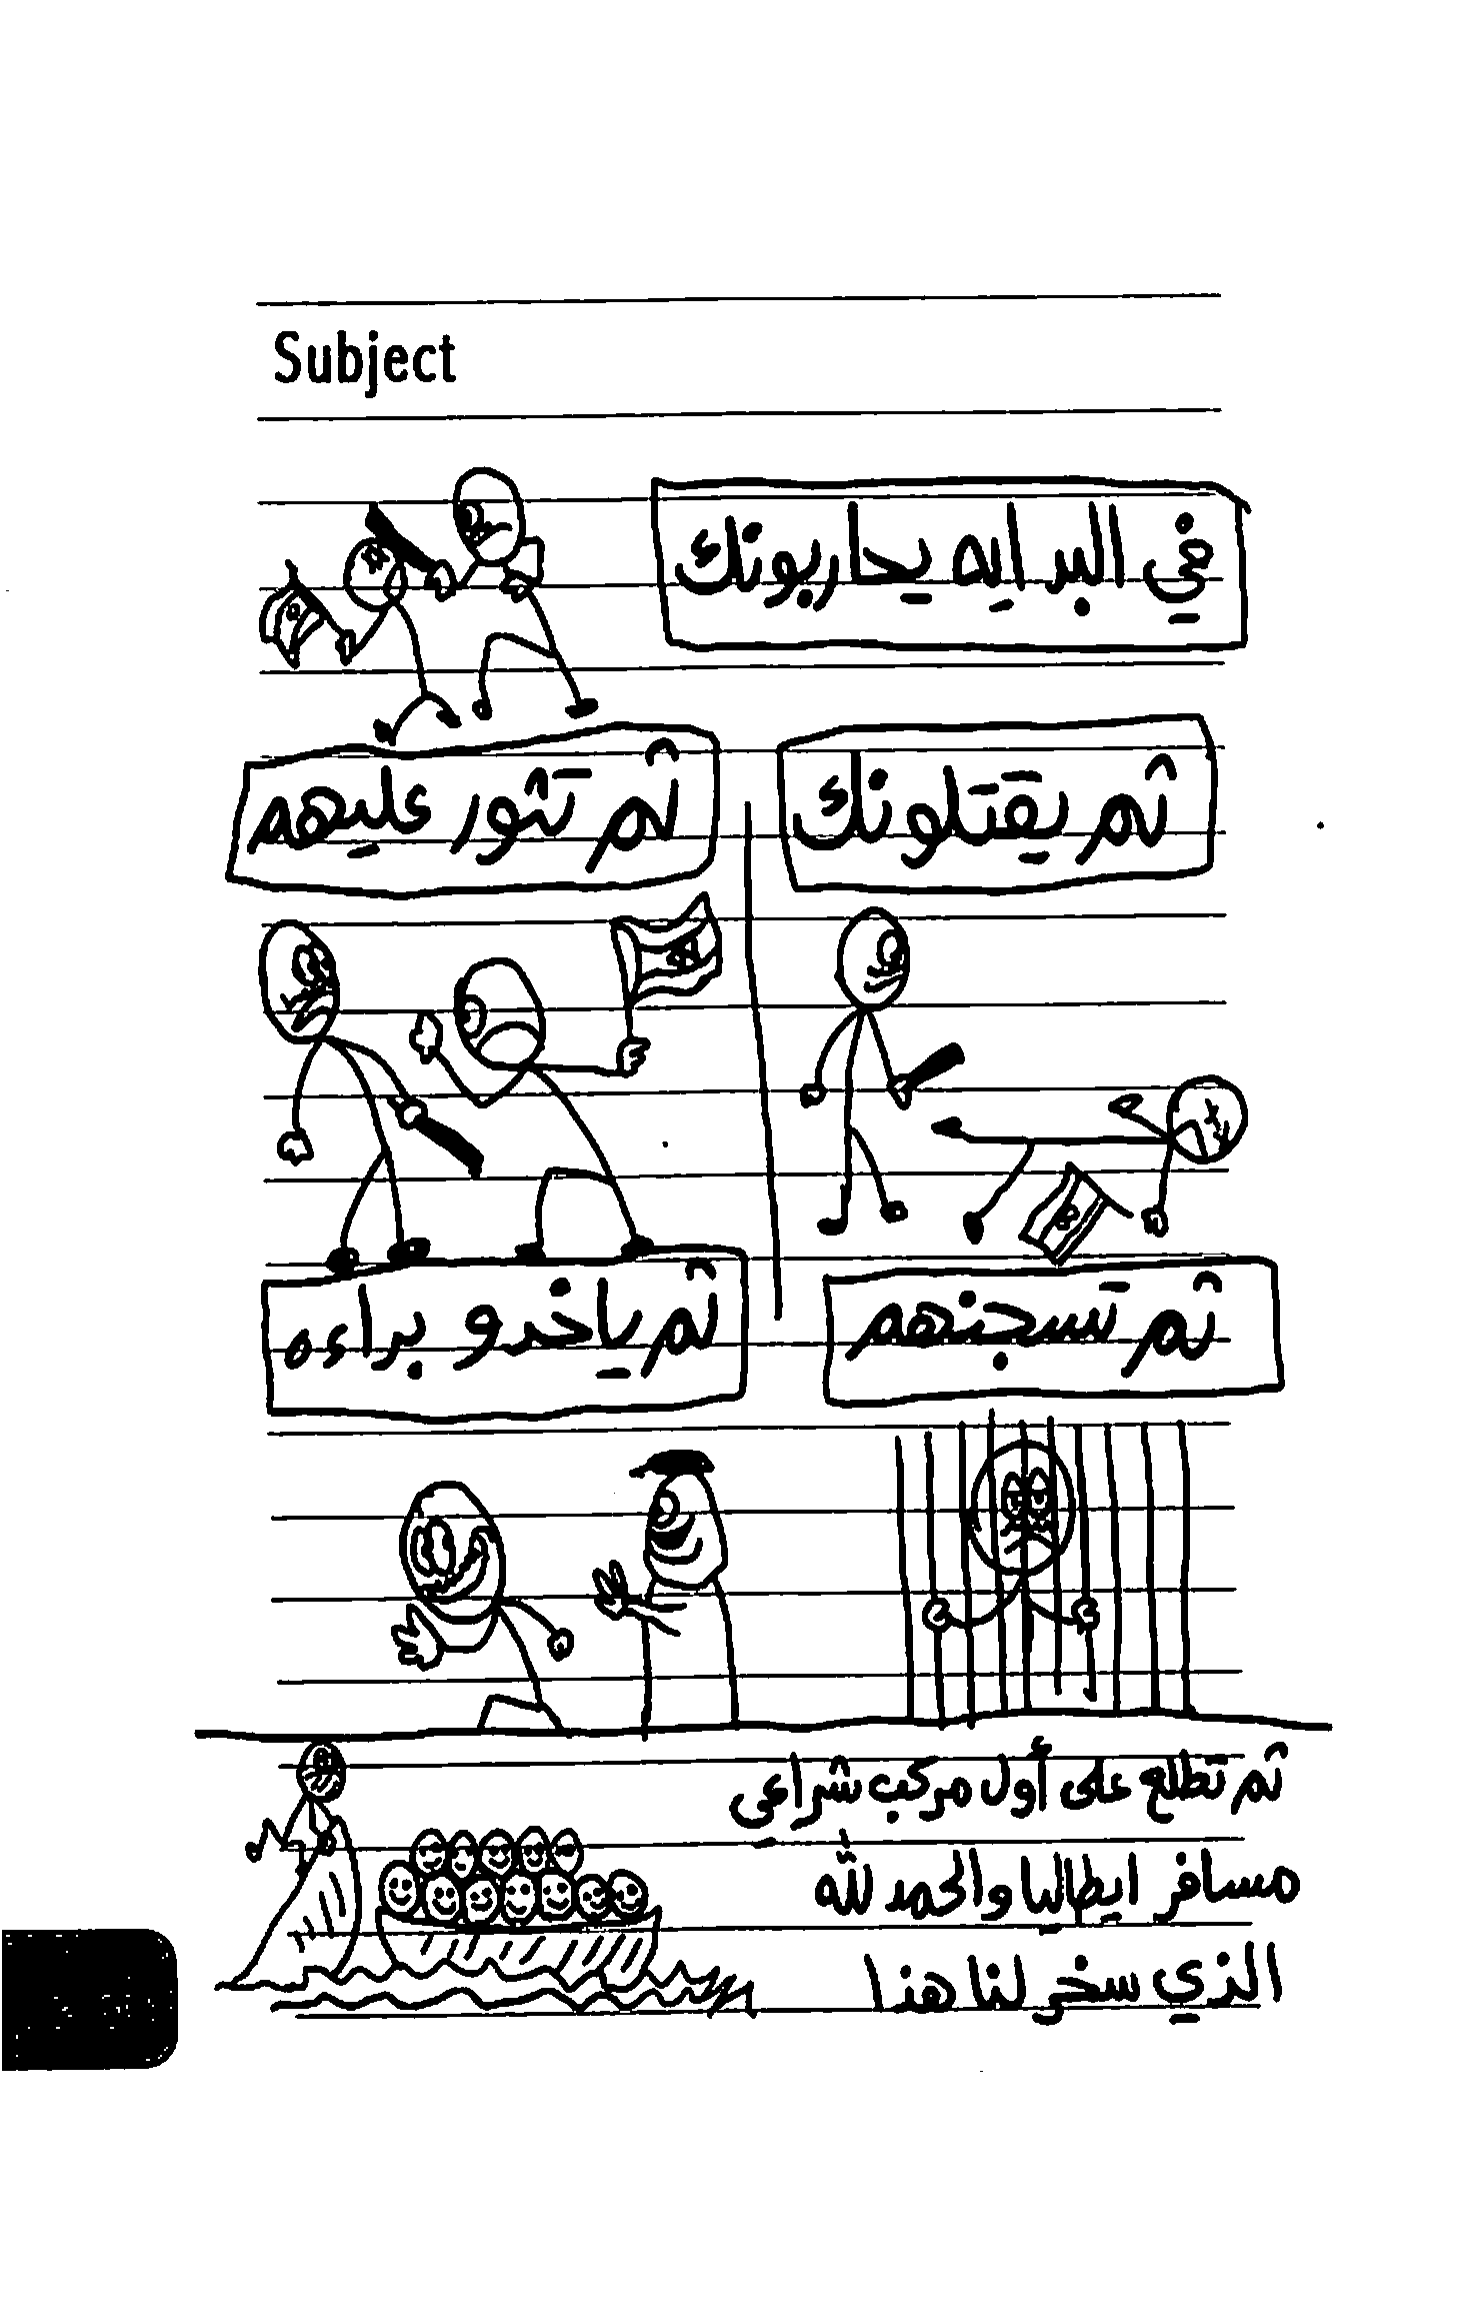 Subject
في البدايه يحاربونك
ثم يقتلونك
ثم تثور عليهم
ثم تسجنهم
ثم ياخدو براءه
ثم تطلع على أول مركب شراعي
مسافر ايطاليا والحمد لله
الذي سخر لنا هذا